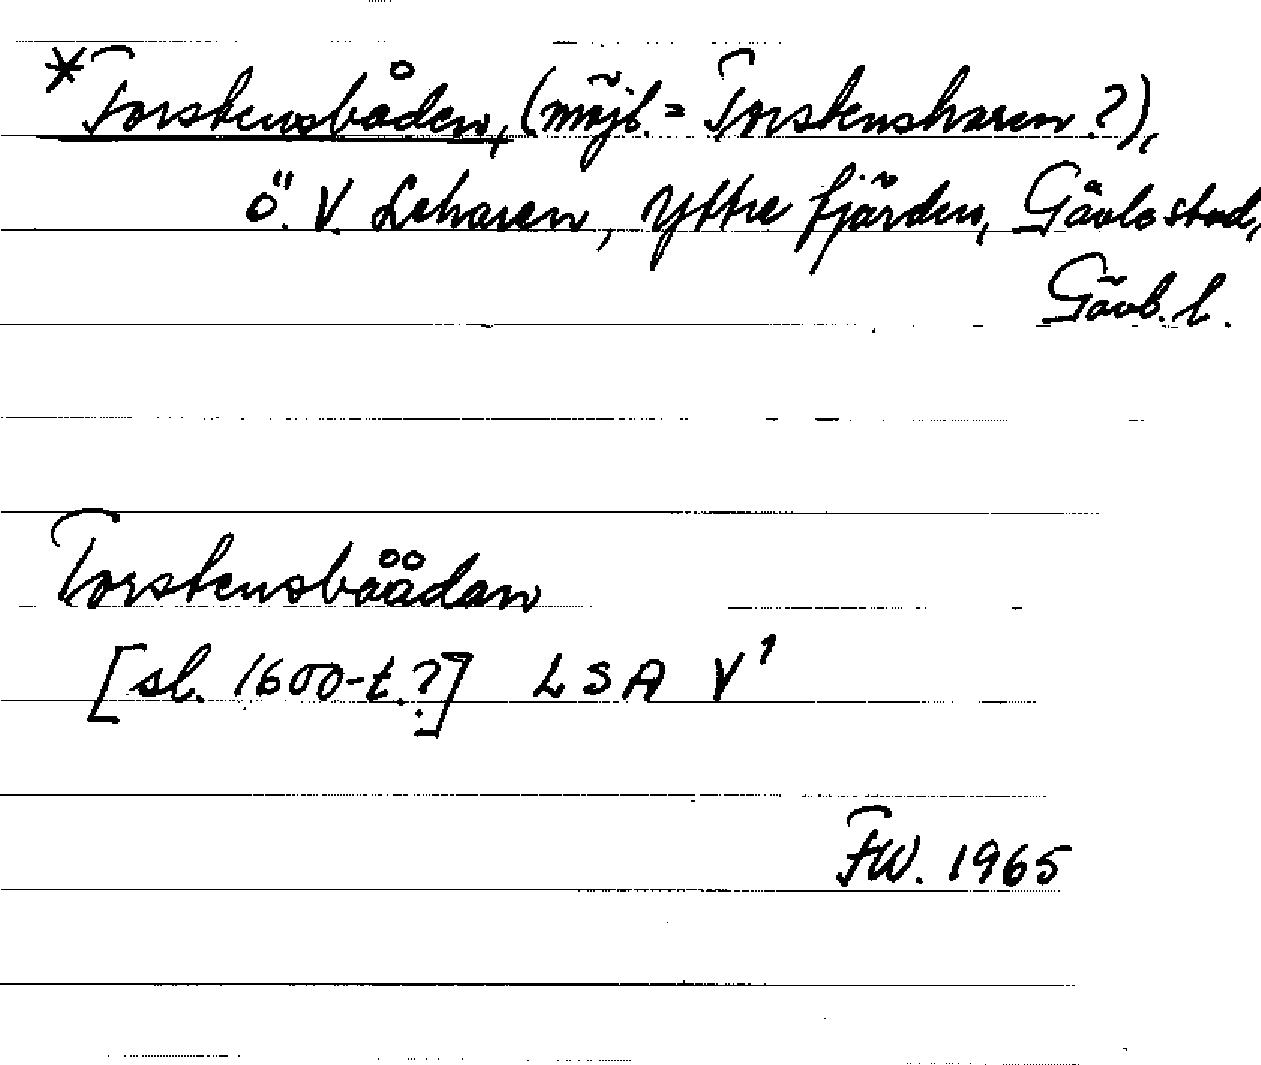 *Torstensbåden, (möjl. = Torstensharen?),
ö. V. Leharen, Yttre fjärden, Gävle stad,
Gävb. l.
Torstensbåådan
[sl. 1600-t.?] LSA V¹
FW. 1965